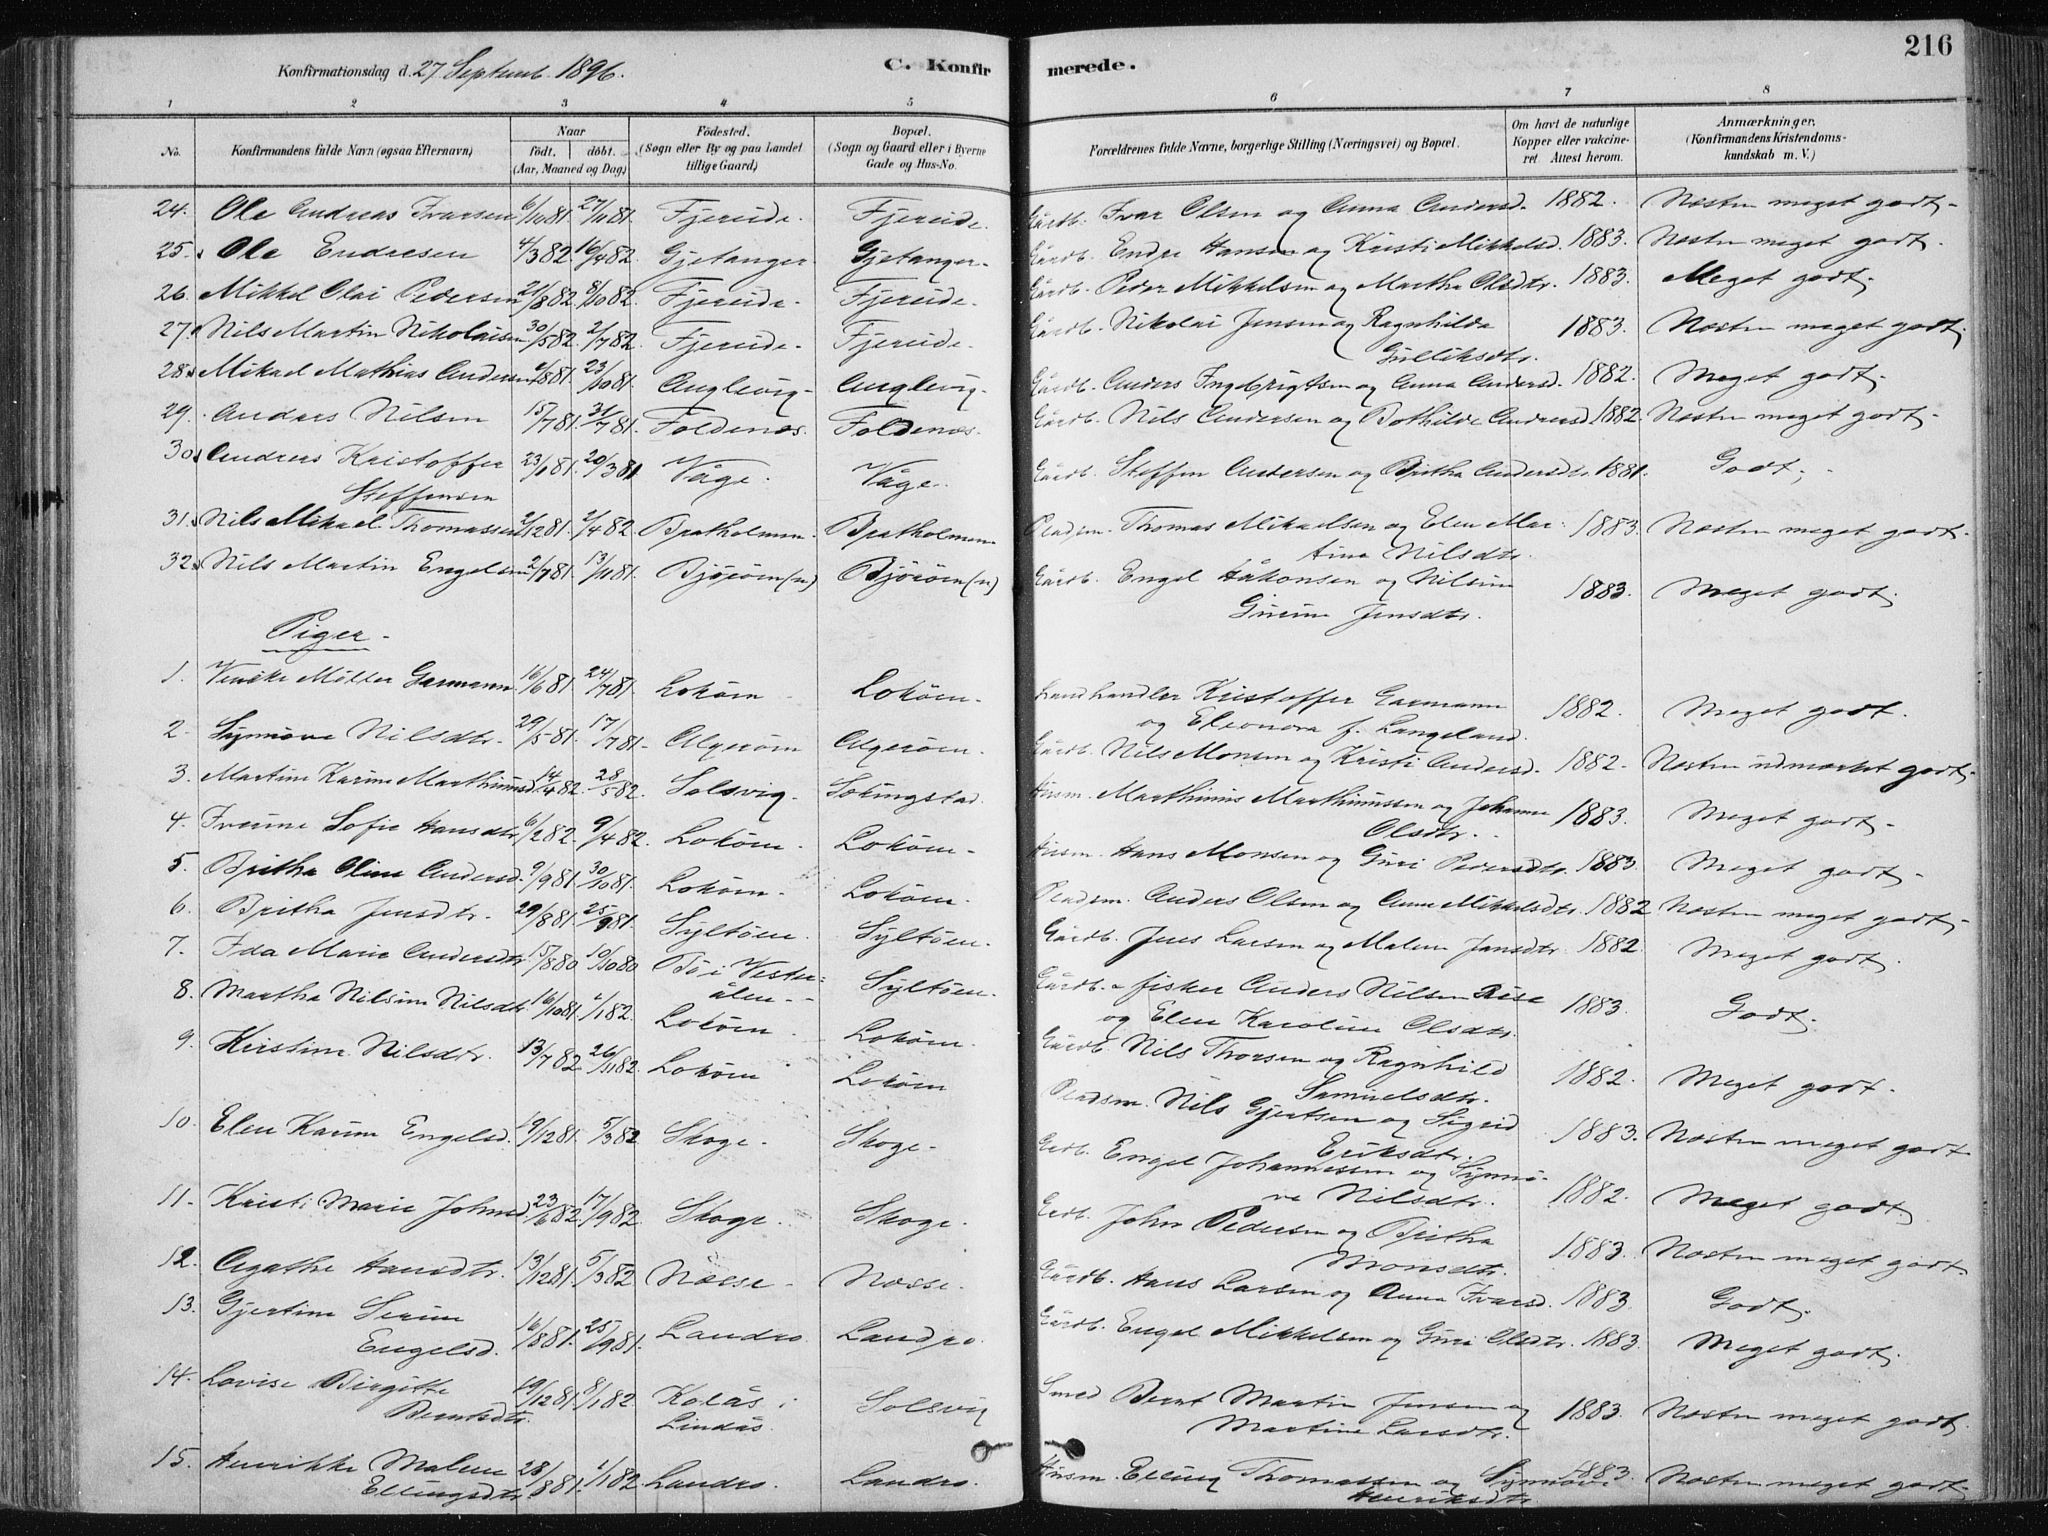 216
Konfirmationsdag d. 27 Septemb. 1896.
C. Konfirmerede.
1 2 3 4 5 6 7 8
No. Konfirmandens fulde Navn (ogsaa Efternavn) Naar født. døbt. (Aar, Maaned og Dag) Fødested. (Sogn eller By og paa Landet tillige Gaard) Bopæl. (Sogn og Gaard eller i Byerne Gade og Hus-No. Forældrenes fulde Navne, borgerlige Stilling (Næringsvei) og Bopæl. Om havt de naturlige Kopper eller vakcineret. Attest herom. Anmærkninger. (Konfirmandens Kristendomskundskab m. V.)
24. Ole Andreas Ivarsen 6/10 81. 27/11 81. Fjereide. Fjereide. Gårdb. Ivar Olsen og Anna Andersd. 1882. Næsten meget godt.
25. Ole Endresen 4/3 82. 16/4 82. Gjetanger. Gjetanger. Gårdb. Endre Hansen og Kristi Mikkelsd. 1883. Næsten meget godt.
26. Mikkel Olai Pedersen 21/8 82. 8/10 82. Fjereide. Fjereide. Gårdb. Peder Mikkelsen og Martha Olsdtr. 1883. Meget godt.
27. Nils Martin Nikolaisen 30/5 82. 2/7 82. Fjereide. Fjereide. Gårdb. Nikolai Jensen og Ragnhilda
Gulliksdtr. 1883. Næsten meget godt.
28. Mikael Mathias Andersen 81. 23/10 81. Anglevig. Anglevig. Gårdb. Anders Ingebrigtsen og Anna Andersd. 1882. Meget godt.
29. Anders Nilsen 15/7 81. 31/7 81. Foldenæs. Foldenæs. Gårdb. Nils Andersen og Bothilde Andersd. 1882. Næsten meget godt.
30. Andreas Kristoffer
Steffensen 23/1 81. 20/3 81 Våge. Våge. Gårdb. Steffen Andersen og Britha Andersdtr. 1881. Godt.
31. Nils Mikael Thomassen 2/12 81. 2/4 82. Bratholmen. Bratholmen Pladsm. Thomas Mikaelsen og Elen Mar-
tina Nilsdtr. 1883. Næsten meget godt.
32. Nils Martin Engelsen 2/7 81. 13/11 81. Bjørøen (n) Bjørøen (n) Gårdb. Engel Håkonsen og Nilsine
Jensdtr. 1883. Meget godt.
Piger.
1. Møller Garmann 16/6 81. 24/7 81. Lokøen Lokøen. Landhandler Kristoffer Garmann
og Eleonora f. Langeland. 1882. Meget godt.
2. Synnøve Nilsdtr. 29/5 81. 17/7 81. Algerøen Algerøen. Gårdb. Nils Monsen og Kristi Andersd. 1882. Næsten udmærket godt.
3. Martine Karine Marthinusd. 14/4 82. 28/5 82. Solsvig. Sekingstad. Husm. Marthinus Marthinussen og Johanne
Olsdtr. 1883. Meget godt.
4. Iverine Sofie Hansdtr. 6/2 82. 9/4 82. Lokøen. Lokøen. Husm. Hans Monsen og Guri Pedersdtr. 1883. Meget godt.
5. Britha Oline Andersd. 9/9 81. 30/10 81. Lokøen. Lokøen. Pladsm. Anders Olsen og Anne Mikkelsdtr. 1882 Næsten meget godt.
6. Britha Jensdtr. 29/8 81. 25/9 81. Syltøen. Syltøen. Gårdb. Jens Larsen og Malene Jansdtr. 1882. Meget godt.
7. Ida Marie Andersdtr. 15/8 80 10/10 80. Bø i Vester-
ålen. Syltøen. Gårdb. & fisker Anders Nilsen
og Elen Karoline Olsdtr. 1883. Godt.
8. Martha Nilsine Nilsdtr. 16/10 81. 1/1 82. Lokøen Lokøen. Gårdb. Nils Thorsen og Ragnhild
Samuelsdtr. 1882. Meget godt.
9. Kirstine Nilsdtr. 13/7 82 26/11 82. Lokøen Lokøen Pladsm. Nils Gjertsen og Sigrid
Eriksdtr. 1883. Næsten meget godt.
10. Elen Karine Engelsd. 19/12 81. 5/3 82. Skoge. Skoge. Grdb. Engel Johannessen og Synnø-
ve Nilsdtr. 1882. Meget godt.
11. Kristi Marie Johnsd. 23/6 82. 17/9 82. Skoge. Skoge. Grdb. John Pedersen og Britha
Monsdtr. 1883. Næsten meget godt.
12. Agathe Hansdtr. 13/12 81. 5/3 82. Næsse Næsse. Gårdb. Hans Larsen og Anna Ivarsd. 1883. Godt.
13. Gjertine Serine
Engelsd. 16/8 81. 25/9 81. Landro. Landro. Gårdb. Engel Mikkelsen og Guri Olsdtr. 1883. Meget godt.
14. Lovise Birgitte
Berntsdtr. 19/12 81. 8/1 82. Kolås i
Lindås. Solsvig Smed Bernt Martin Jensen og
Martine Larsdtr. 1883. Næsten meget godt.
15. Henrikke Malene
Ellingsdtr. 28/8 81. 1/1 82 Landro. Landro. Husm. Elling Thomassen og Synnøve
Henriksdtr. 1883. Næsten meget godt.